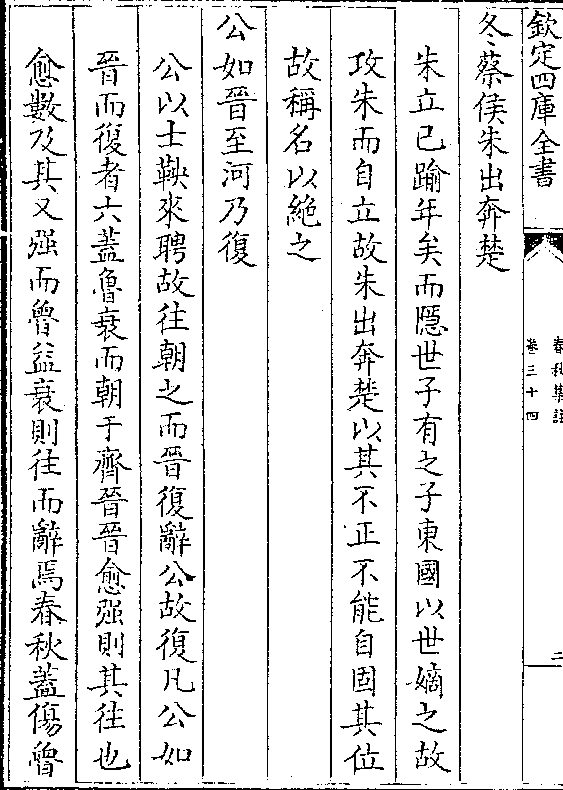 欽定四庫全書
春秋集註
卷三十四
二
冬蔡侯朱出奔楚
朱立已踰年矣而隱世子有之子東國以世嫡之故
攻朱而自立故朱出奔楚以其不正不能自固其位
故稱名以絶之
公如晉至河乃復
公以士鞅來聘故往朝之而晉復辭公故復凡公如
晉而復者六蓋魯衰而朝于齊晉晉愈强則其往也
愈數及其又强而魯益衰則往而辭焉春秋蓋傷魯